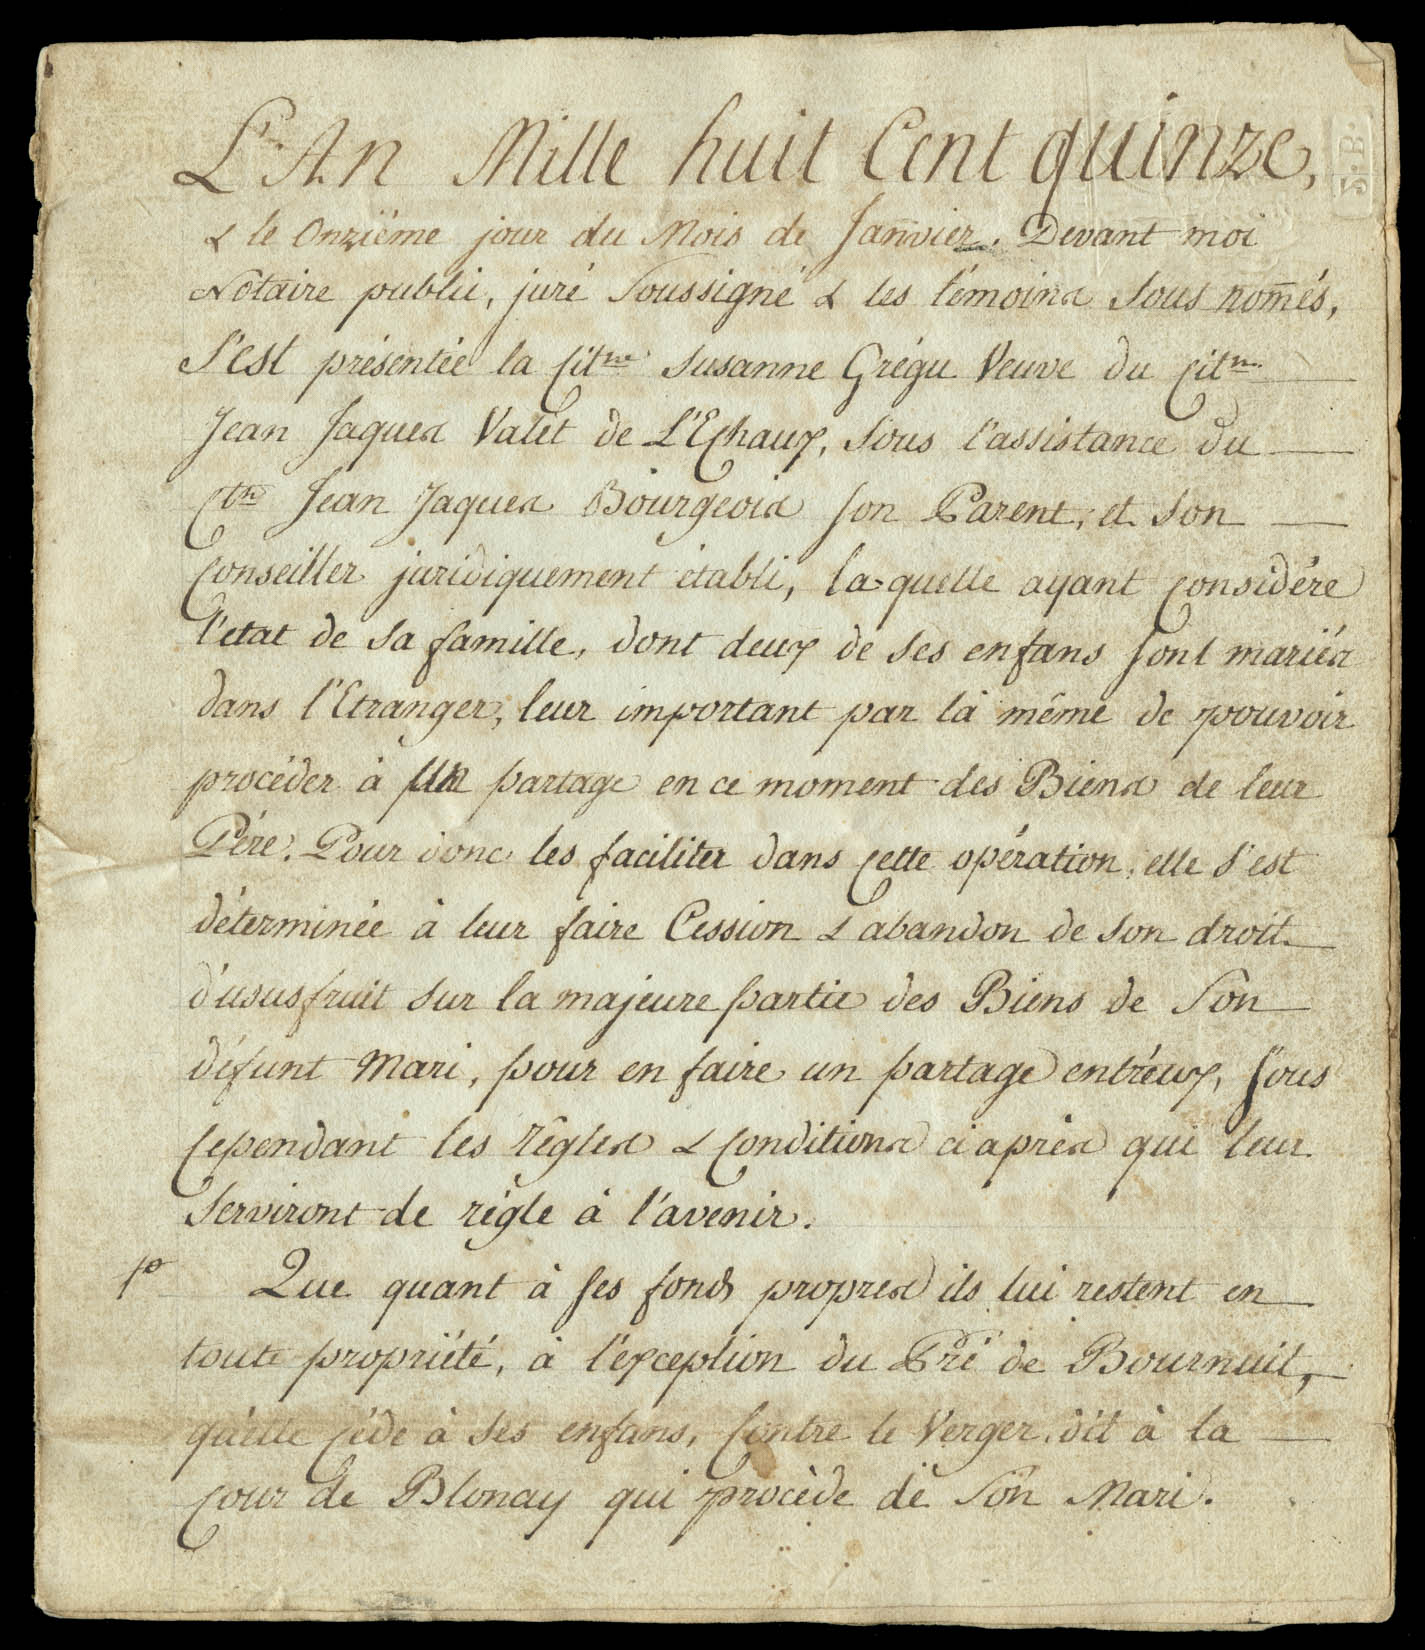 L'An Mille huit Cent quinze,
& le Onzïéme jour du Mois de Janvier. Devant moi
Notaire public, juré Soussigné & les témoins Sous nom̄és,
S'est présentée la Citne Susanne Grégu Veuve du Citn
Jean Jaques Valet de L'Echaux, Sous l'assistance du
Ctn Jean Jaques Bourgeois son Parent, et son
Conseiller juridiquement établi, laquelle ayant Considéré
l'etat de sa famille, dont deux de ses enfans sont mariés
dans l'Etranger, leur important par là même de pouvoir
procéder à un partage en ce moment des Biens de leur
Pére. Pour donc les faciliter dans Cette opération, elle s'est
déterminée à leur faire Cession & abandon de son droit
d'ususfruit sur la majeure partie des Biens de Son
défunt Mari, pour en faire un partage entr'eux, sous
Cependant les régles & Conditions ci après qui leur
Serviront de régle à l'avenir.
1o Que quant à ses fonds propres ils lui restent en
toute propriété, à l'exception du Pré de Bournuit,
qu'elle Céde à ses enfans, Contre le Verger, dit à la
Cour de Blonay qui procède de Son Mari.
S.B.